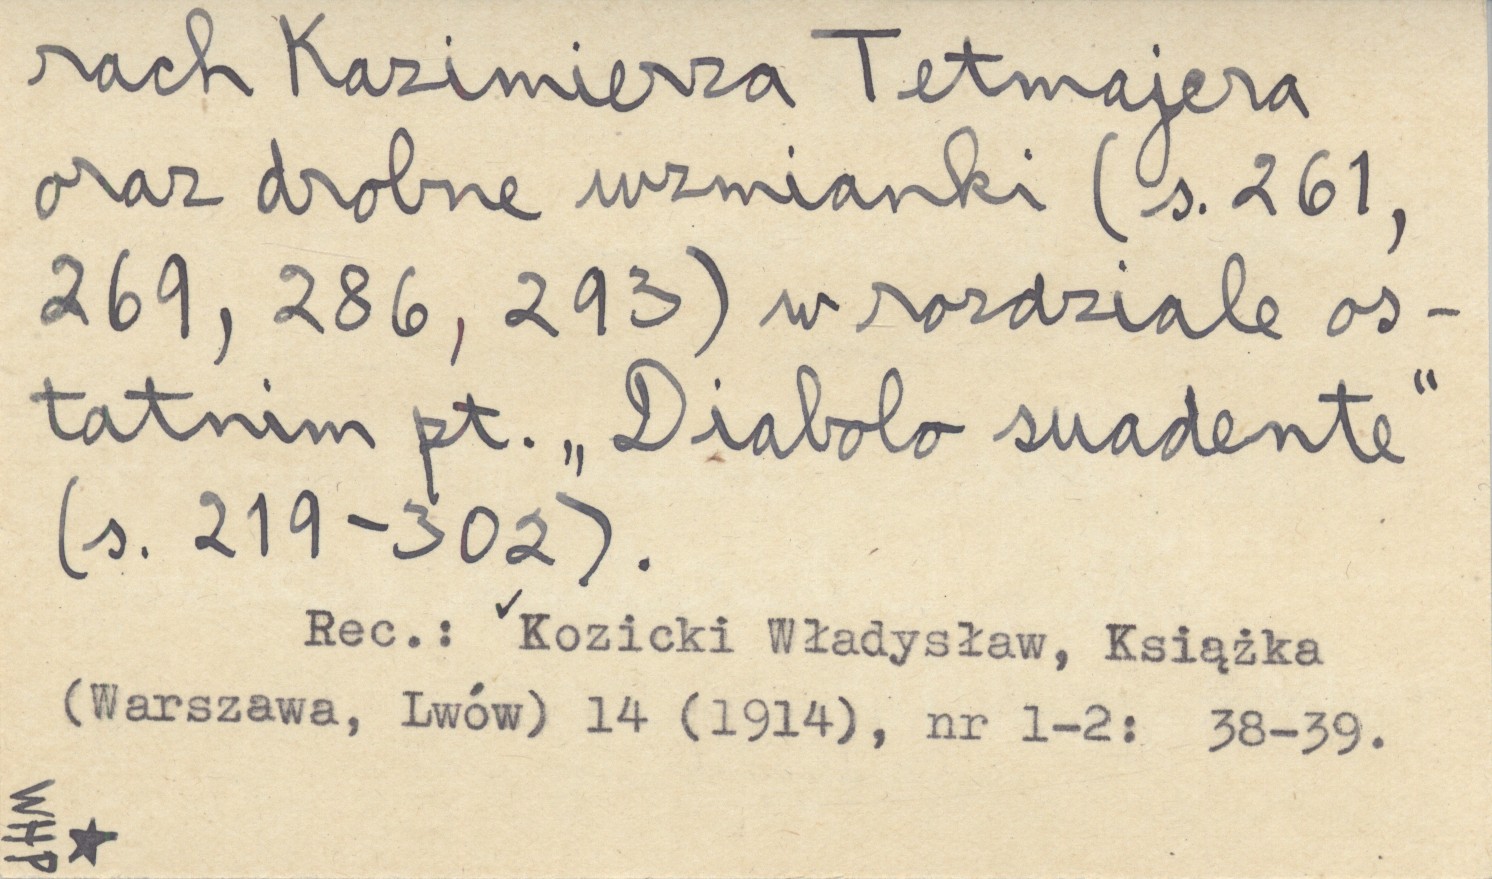 rach Kazimierza Tetmajera
oraz drobne wzmianki (s. 261,
269, 286, 293) w rozdziale os-
tatnim pt. „Diabolo suadente“
(s. 219-302).
Rec.: ✓Kozicki Władysław, Książka
(Warszawa, Lwów) 14 (1914), nr 1-2: 38-39.
WHP ★